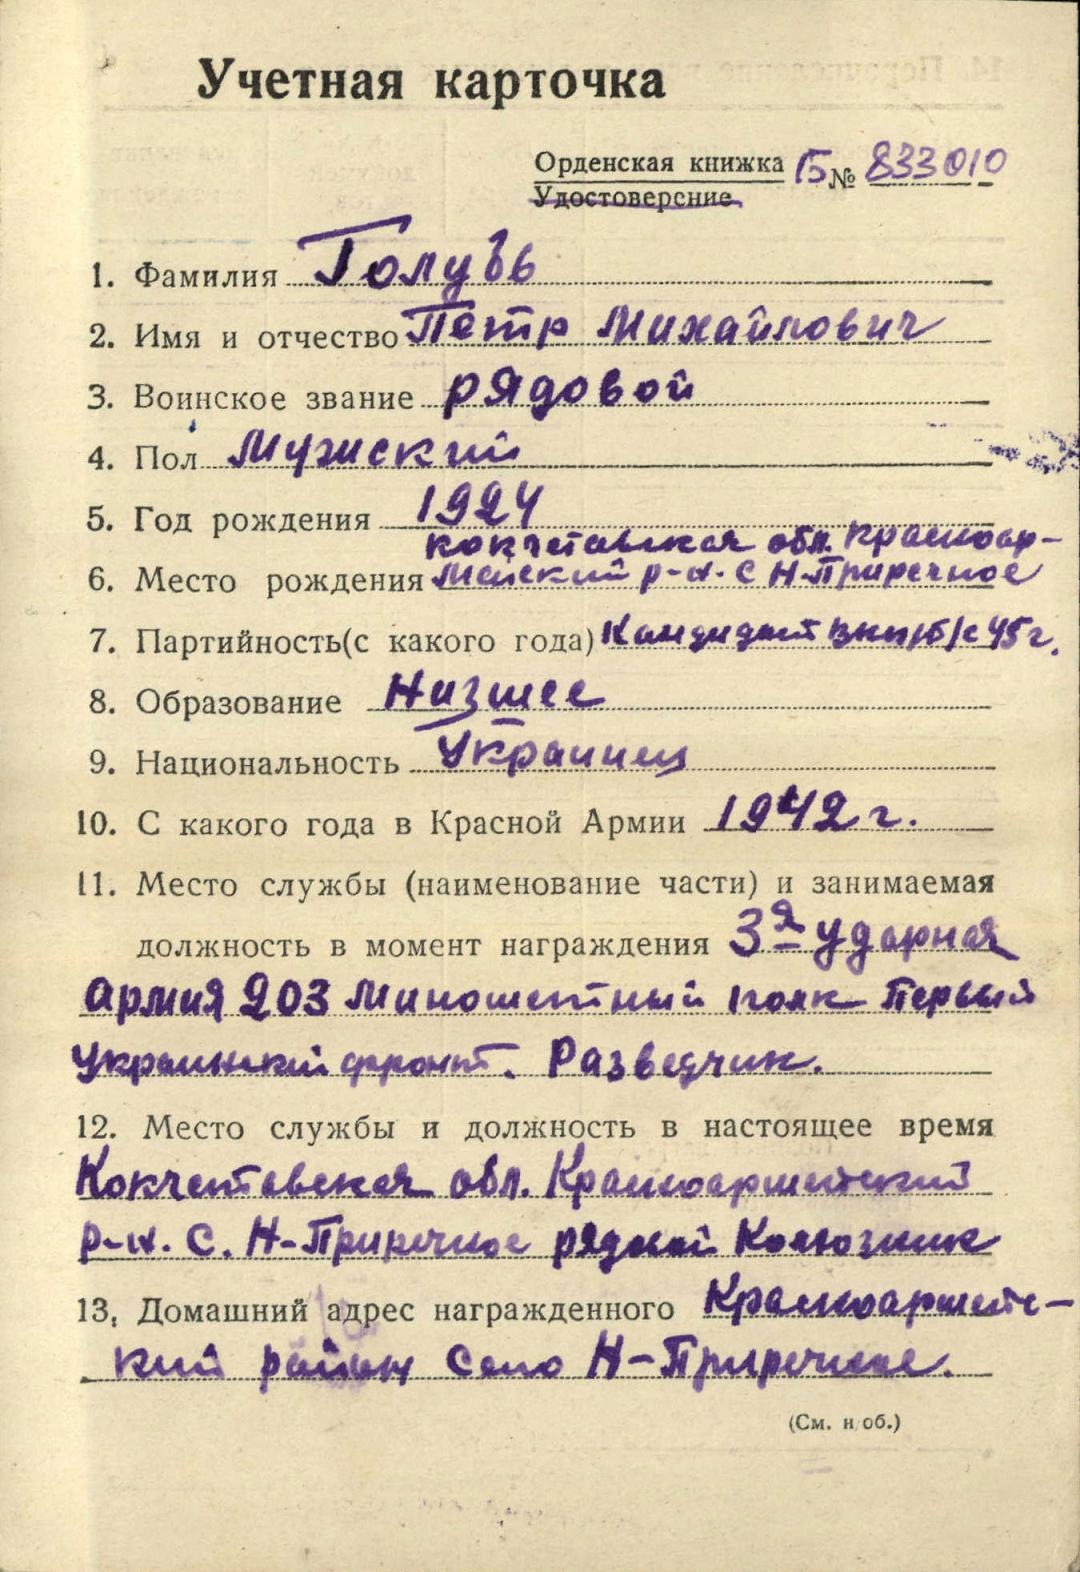 Учетная карточка
Орденская книжка Б № 833010
Удостоверение
1. Фамилия Голубь
2. Имя и отчество Пётр Михайлович
3. Воинское звание рядовой
4. Пол Мужский
5. Год рождения 1924
Кокчетавская обл. Красноар-
6. Место рождения мейский р-н. с Н-Приречное
7. Партийность(с какого года) Кандидат ВКП/б/с 45 г.
8. Образование Низшее
9. Национальность Украинец
10. С какого года в Красной Армии 1942 г.
11. Место службы (наименование части) и занимаемая
должность в момент награждения 3я ударная
армия 203 Минометный полк Первый
Украинский фронт. Разведчик.
12. Место службы и должность в настоящее время
Кокчетавская обл. Красноармейский
р-н. с. Н-Приречное рядовой Колхозник
13. Домашний адрес награжденного Красноармейс-
кий район село Н-Приречное.
(См. н об.)